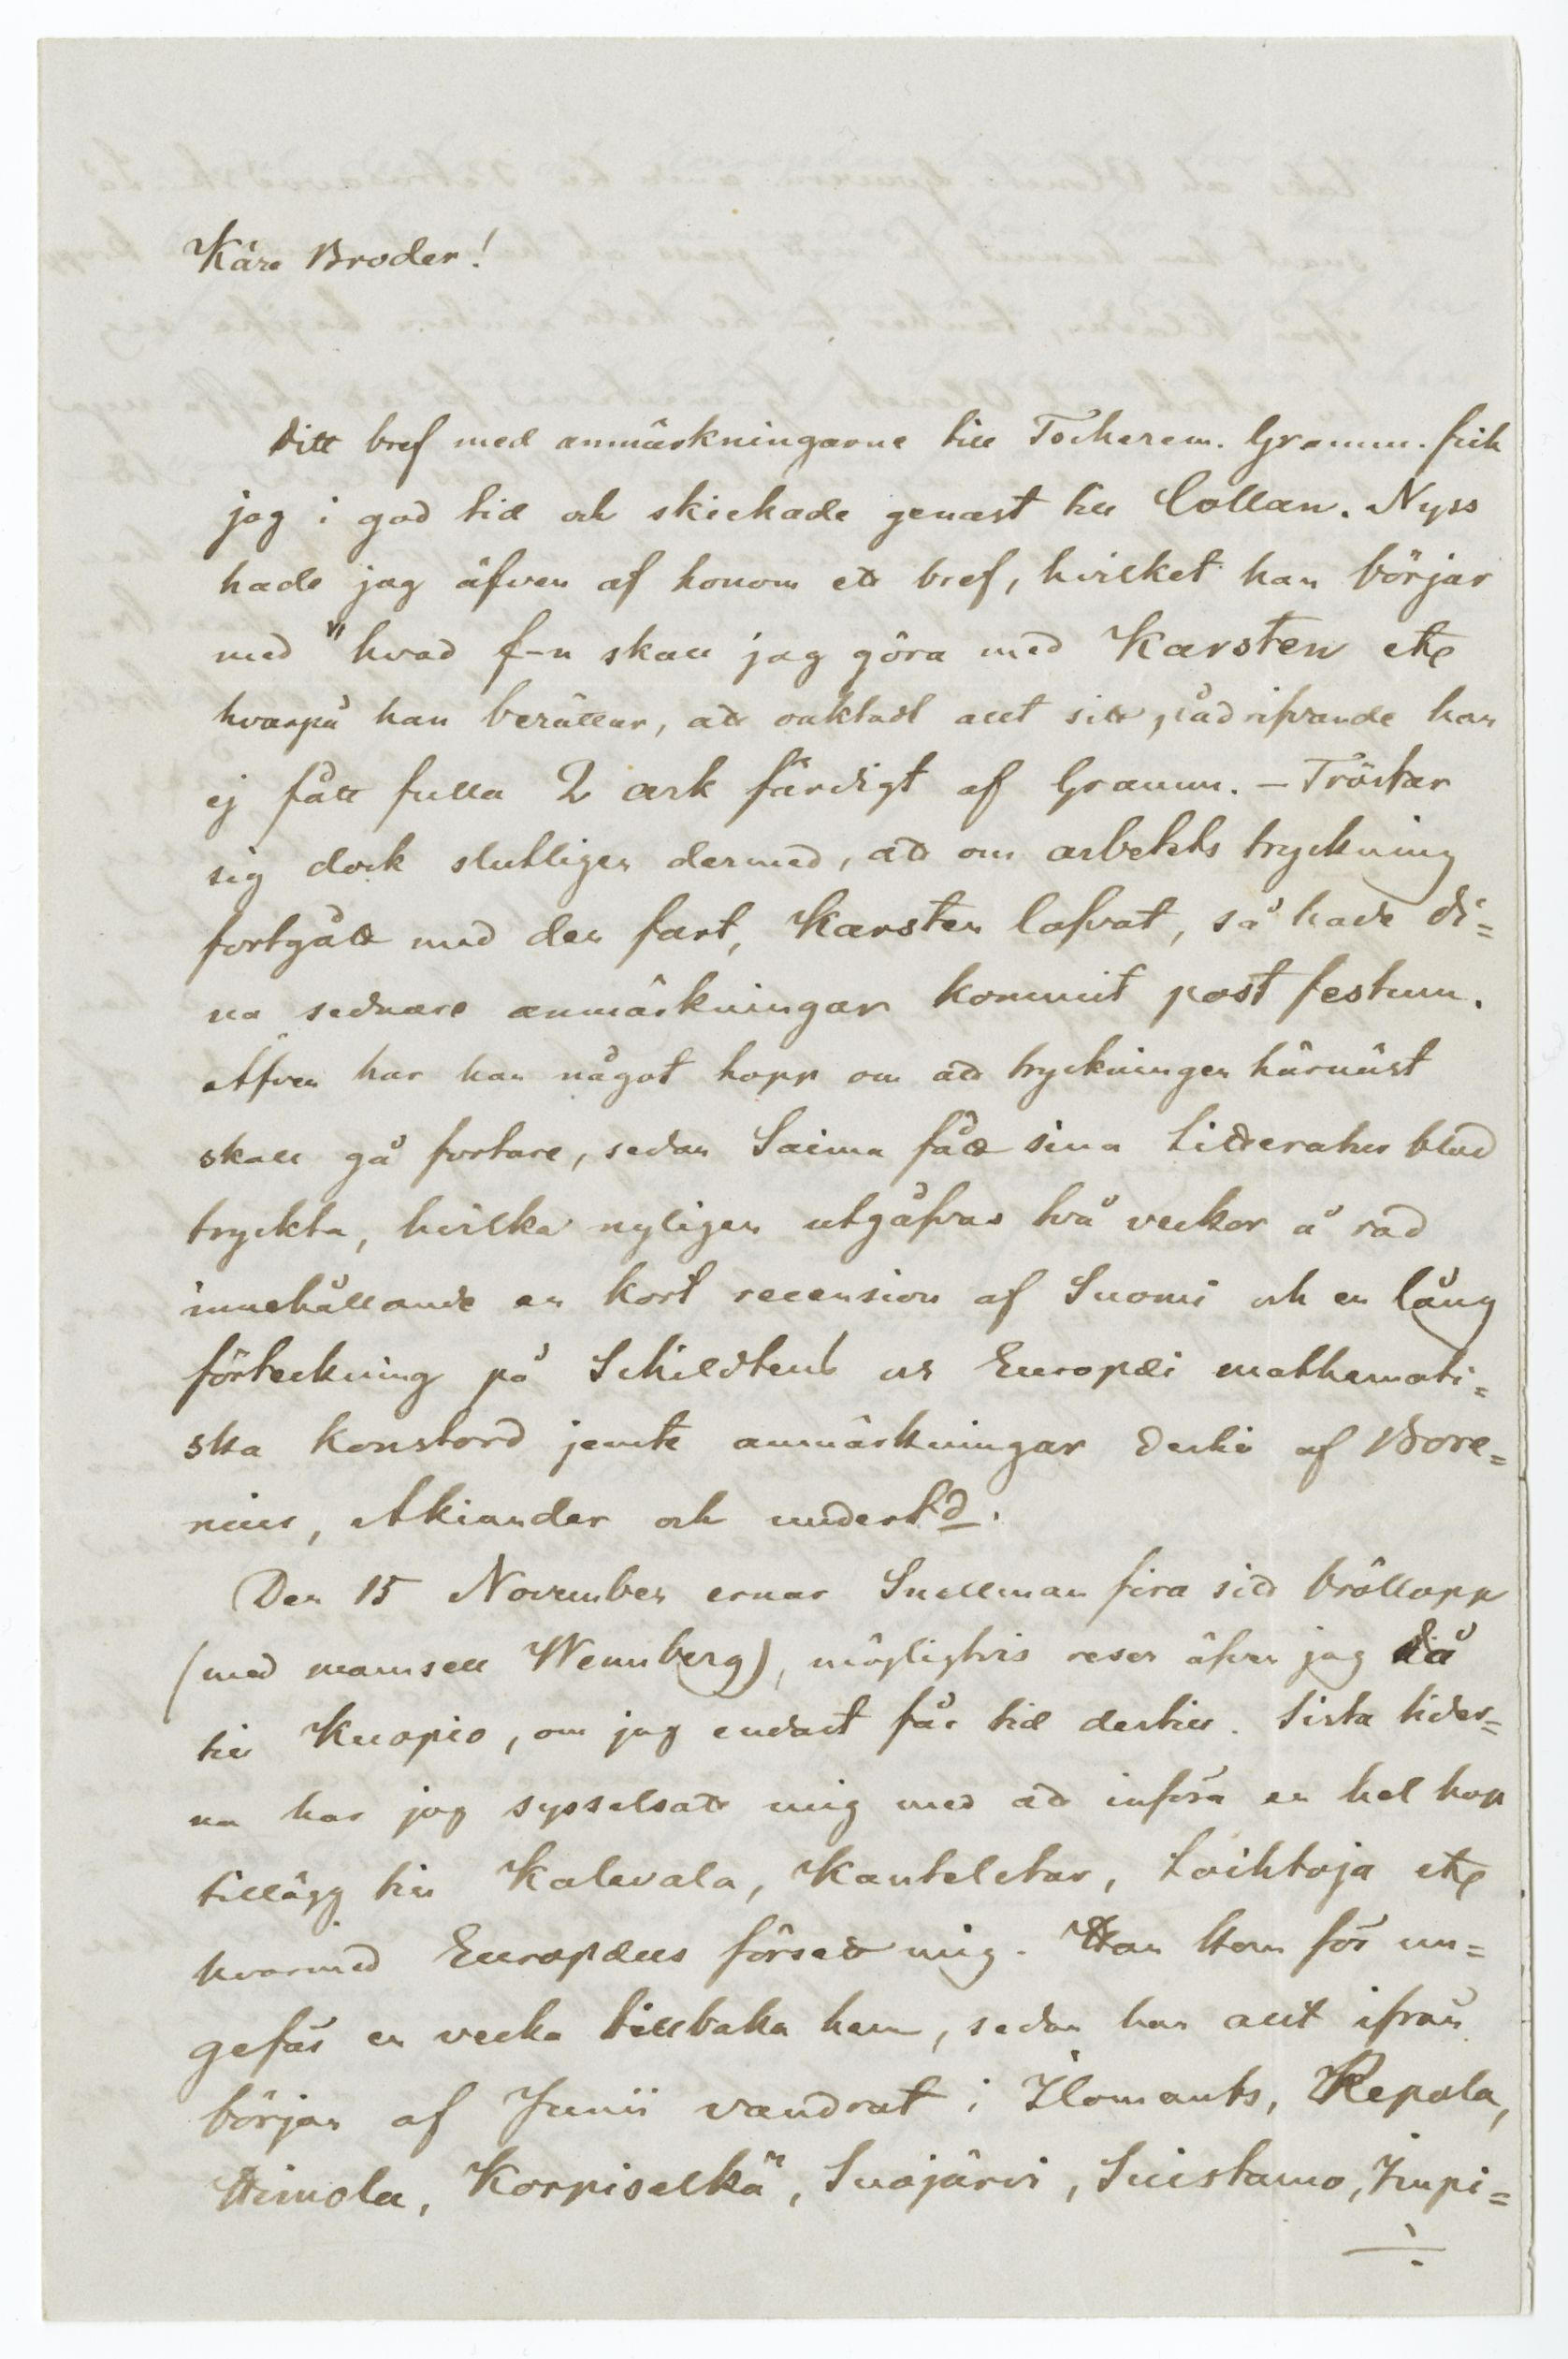 Käre Broder!
Ditt bref med anmärkningarne till Tscherem. Gramm. fick
jag i god tid och skickade genast till Collan. Nyss
hade jag äfven af honom ett bref, hvilket han börjar
med "hvad f-n skall jag göra med Karsten etc
hvarpå han berättar, att oaktadt allt sitt pådrifvande han
ej fått fulla 2 ark färdigt af Gramm. – Tröstar
sig dock slutligen dermed, att om arbetets tryckning
fortgått med den fart, Karsten lofvat, så hade di=
na sednare anmärkningar kommit post festum.
Äfven har han något hopp om att tryckningen härnäst
skall gå fortare, sedan Saima fått sina Litteratur blad
tryckta, hvilka nyligen utgåfvos två veckor å rad
innehållande en kort recension af Suomi och en lång
förteckning på Schildtens och Europæi mathemati=
ska konstord jemte anmärkningar dertill af Bore=
nius, Akiander och undert:d.
Den 15 November ernar Snellman fira sitt bröllopp
(med mamsell Wennberg), möjligtvis reser äfven jag då
till Kuopio, om jag endast får tid dertill. Sista tider=
na har jag sysselsatt mig med att införa en hel hop
tillägg till Kalevala, Kanteletar, Loihtoja etc
hvarmed Europæus försett mig. Han kom för un=
gefär en vecka tillbaka hem, sedan han allt ifrån
början af Junii vandrat i Ilomants, Repola,
Himola, Korpiselkä, Suojärvi, Suistamo, Impi=